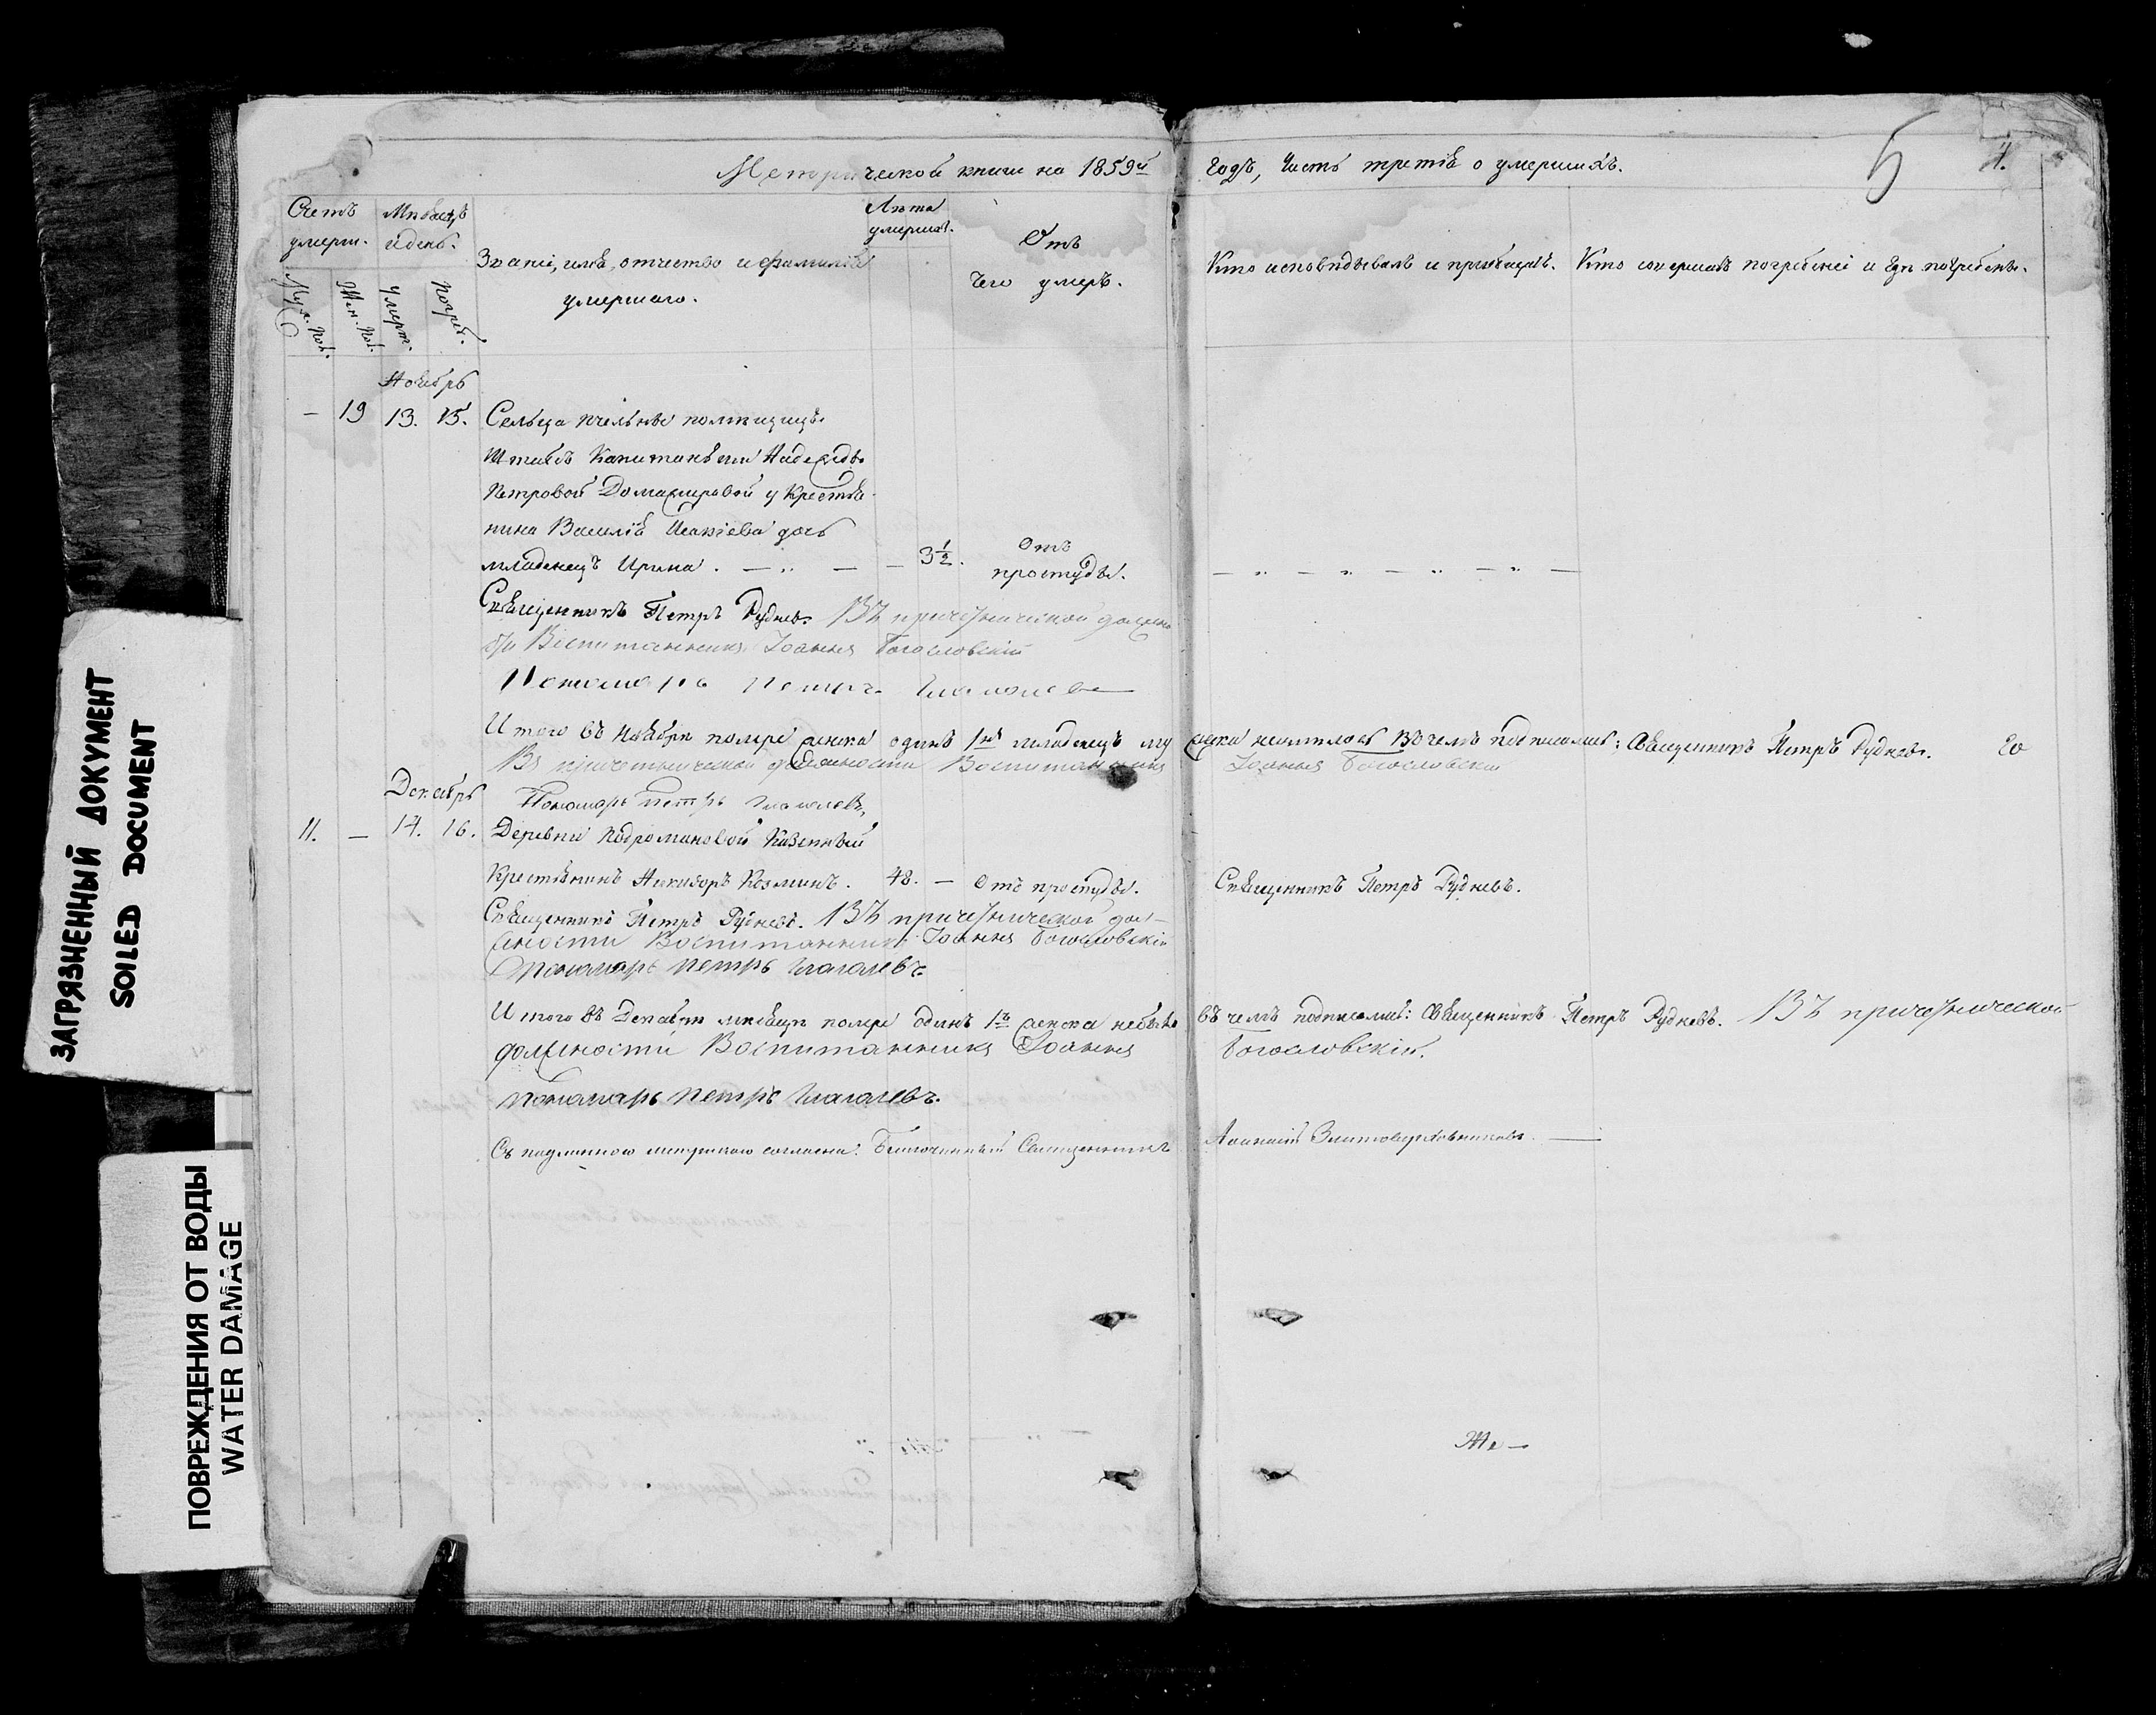 Метрической книги на 1859й годъ, Часть третія о умершихъ.
5
4.
Счетъ умерш.
Мѣсяцъ и день.
Муж. пол.
Жен. пол.
умерт.
погреб.
Званіе, имя, отчество и фамилія
умершаго.
Лѣта
умершаг.
Отъ
чего умеръ.
Кто исповѣдывалъ и пріобщалъ.
Кто совершалъ погребеніе и гдѣ погребены.
Ноябрь
— 19 13. 15. Сельца помѣщицы
Штабсъ Капитанши Надежды
Петровой у Крестья-
нина Василія Исакіева дочь
младенецъ Ирина. — „ — — 3½. Отъ простуды. — „ — „ — „ — „ —
Священникъ Петръ Рудневъ. Въ причетнической должно-
сти Воспитанникъ Іоаннъ Богословскій
Пономарь Петръ Глаголевъ
Итого въ Ноябрѣ померѣ женска одинъ 1нъ младенецъ мужеска неимѣлось Въ чемъ подписались: Священникъ Петръ Рудневъ.
Въ причетнической должности Воспитанникъ Іоаннъ Богословскій
Декабрь
Пономарь Петръ Глаголевъ,
11. — 14. 16. Деревни Казенный
Крестьянинъ Никифоръ Козминъ. 48. — Отъ простуды. Священникъ Петръ Рудневъ.
Священникъ Петръ Рудневъ. Въ причетнической дол-
жности Воспитанникъ Іоаннъ Богословскій
Пономарь Петръ Глаголевъ.
Итого въ Декабрѣ мѣсяцѣ померѣ одинъ 1нъ женска небыло въ чемъ подписались: Священникъ Петръ Рудневъ. Въ причетнической
должности Воспитанникъ Іоаннъ Богословскій.
Пономарь Петръ Глаголевъ.
Съ подлинною метрикою согласна: Благочинный Священникъ
ЗАГРЯЗНЕННЫЙ ДОКУМЕНТ
SOILED DOCUMENT
ПОВРЕЖДЕНИЯ ОТ ВОДЫ
WATER DAMAGE